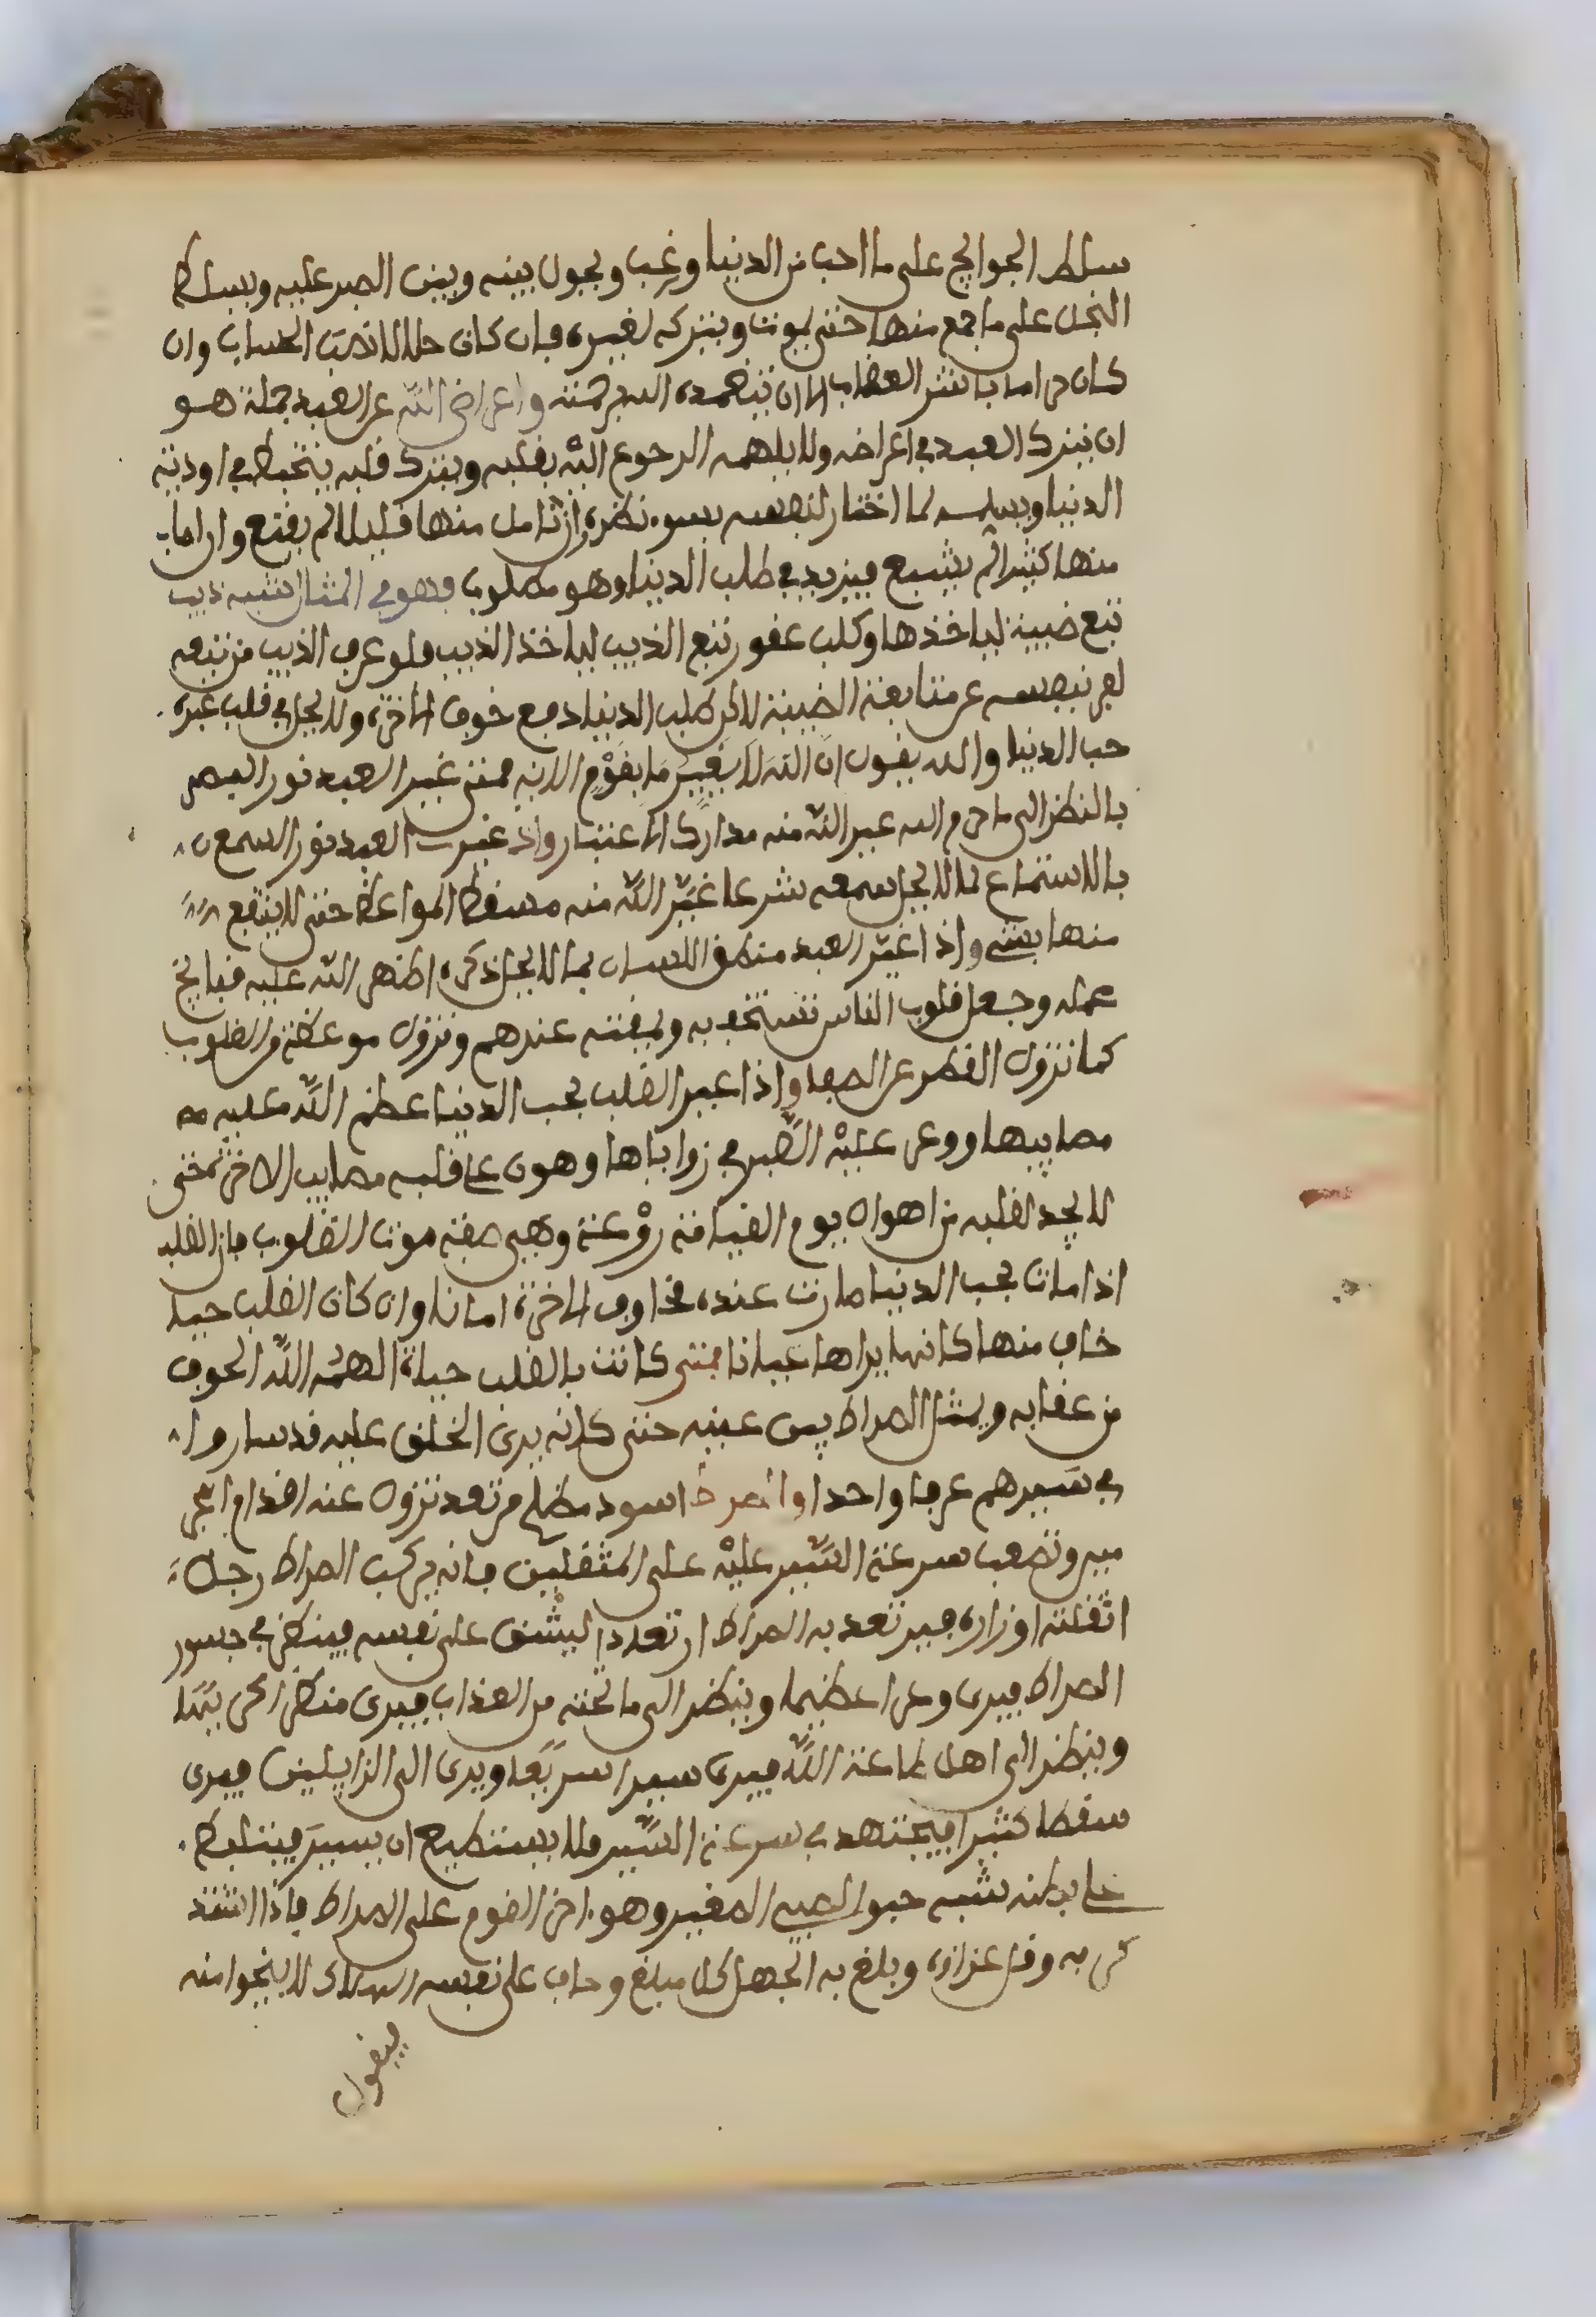 سلط الجوايح على ما احب من الدنيا ورغب ويحول بينه وبين الصبر عليه ويسلط
البخل على ما جمع منها حتى يموت ويتركه لغيره فان كان حلالا الحساب وان
كان حراما باشر العذاب الا ان يتغمده الله برحمته واعراض الله عن العبد جملة هو
ان يترك العبد في اعراضه ولا يلهمه الرجوع اليه بقلبه ويترك قلبه يتخبط في اودية
الدنيا ويسلمه لما اختار لنفسه بسوء نظره ان نال منها قليلا لم يقنع وان اصاب
منها كثيرا لم يشبع فيزيد في طلب الدنيا وهو مطلوب فهو في المثال شبه ذيب
تبع ضبية لياخذها وكلب عفور تبع الذيب لياخذ الذيب فلو عرف الذيب من تبعه
لفر بنفسه عن متابعة الضبية لاكن طلب الدنيا دفع خوف الاخرة ولا يحل في قلب غيره
حب الدنيا والله يقول ان الله لا يغير ما بقوم الاية فمتى غير العبد نور البصر
بالنظر الى ما حرم الله غير الله منه مدارك الاعتبار واذ غير العبد نور السمع
بالاستماع لما لا يحل سمعه شرعا غير الله منه مسقط المواعظ حتى لا ينتفع
منها بشيء واذا غير العبد منطق اللسان بما لا يحل ذكره اظهر الله عليه قبايح
عمله وجعل قلوب الناس تستخف به وبمقته عندهم وتزول موعظته من القلوب
كما تزول القطر عن الصفا واذا غير القلب بحب الدنيا عظم الله عليه
مصايبها ووعر عليه الصبر في زواياها وهون على قلبه مصايب الاخرة حتى
لا يجد لقلبه من اهوال يوم القيامة روعة وهي صفة موت القلوب فان القلب
اذا مات بحب الدنيا صارت عنده مخاوف الاخرة امانا وان كان القلب حيا
خاف منها كانه يراها عيانا فمتى كانت بالقلب حياة الهمه الله الخوف
من عقابه ويمثل الصراط بين عينيه حتى كانه يرى الخلق عليه قد ساروا
في سيرهم عرفا واحدا والصراط اسود مظلم مرتعد تزول عنه اقدام المجر
مين وتصعب سرعة السير عليه على المثقلين فانه يركب الصراط رجل
اثقلته اوزاره فيرتعد به الصراط ارتعادا ليشق على نفسه فينظر في جسور
الصراط فيرى وعرا عظيما وينظر الى ما تحته من العذاب فيرى منظرا كريها
وينظر الى اهل طاعة الله فيرى سيرا سريعا ويرى الى الزايلين فيرى
سقطا كثيرا فيجتهد في سرعة السير فلا يستطيع ان يسير فينبطح
على بطنه شبه حبو الصبي الصغير وهو اخر القوم على الصراط فاذا اشتد
كربه وقل عزاؤه وبلغ به الجهل كل مبلغ وخاف على نفسه الهلاك لا ينجوا منه
فيقول